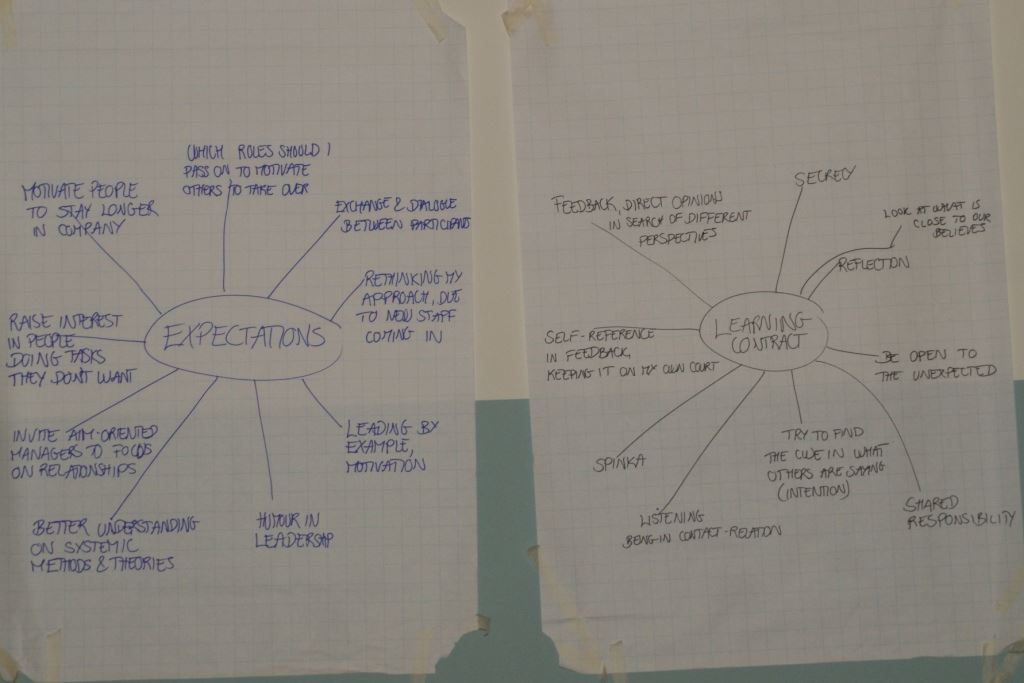 WHICH ROLES SHOULD I
PASS ON TO MOTIVATE
OTHERS TO TAKE OVER
MOTIVATE PEOPLE
TO STAY LONGER
IN COMPANY
EXCHANGE & DIALOGUE
BETWEEN PARTICIPANTS
RETHINKING MY
APPROACH, DUE
TO NEW STAFF
COMING IN
EXPECTATIONS
RAISE INTEREST
IN PEOPLE
DOING TASKS
THEY DON'T WANT
INVITE AIM-ORIENTED
MANAGERS TO FOCUS
ON RELATIONSHIPS
LEADING BY
EXAMPLE,
MOTIVATION
BETTER UNDERSTANDING
ON SYSTEMIC
METHODS & THEORIES
HUMOUR IN
LEADERSHIP
SECRECY
FEEDBACK, DIRECT OPINION
IN SEARCH OF DIFFERENT
PERSPECTIVES
LOOK AT WHAT IS
CLOSE TO OUR
BELIEVES
REFLECTION
LEARNING
CONTRACT
SELF-REFERENCE
IN FEEDBACK,
KEEPING IT ON MY OWN COURT
BE OPEN TO
THE UNEXPECTED
SPINKA
TRY TO FIND
THE CLUE IN WHAT
OTHERS ARE SAYING
(INTENTION)
LISTENING
BEING-IN CONTACT-RELATION
SHARED
RESPONSIBILITY